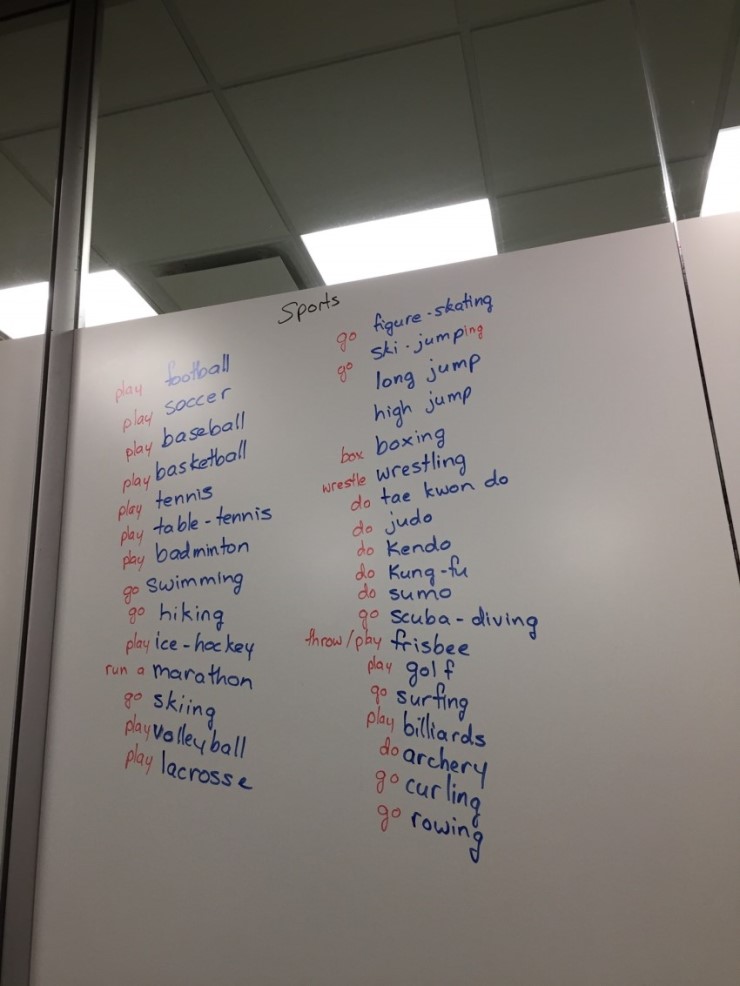 Sports
play football
play soccer
play baseball
play basketball
play tennis
play table-tennis
play badminton
go swimming
go hiking
play ice-hockey
run a marathon
go skiing
play volleyball
play lacrosse
go figure-skating
go ski-jumping
long jump
high jump
box boxing
wrestle wrestling
do tae kwon do
do judo
do Kendo
do Kung-fu
do sumo
go scuba-diving
throw/play frisbee
play golf
go surfing
play billiards
do archery
go curling
go rowing